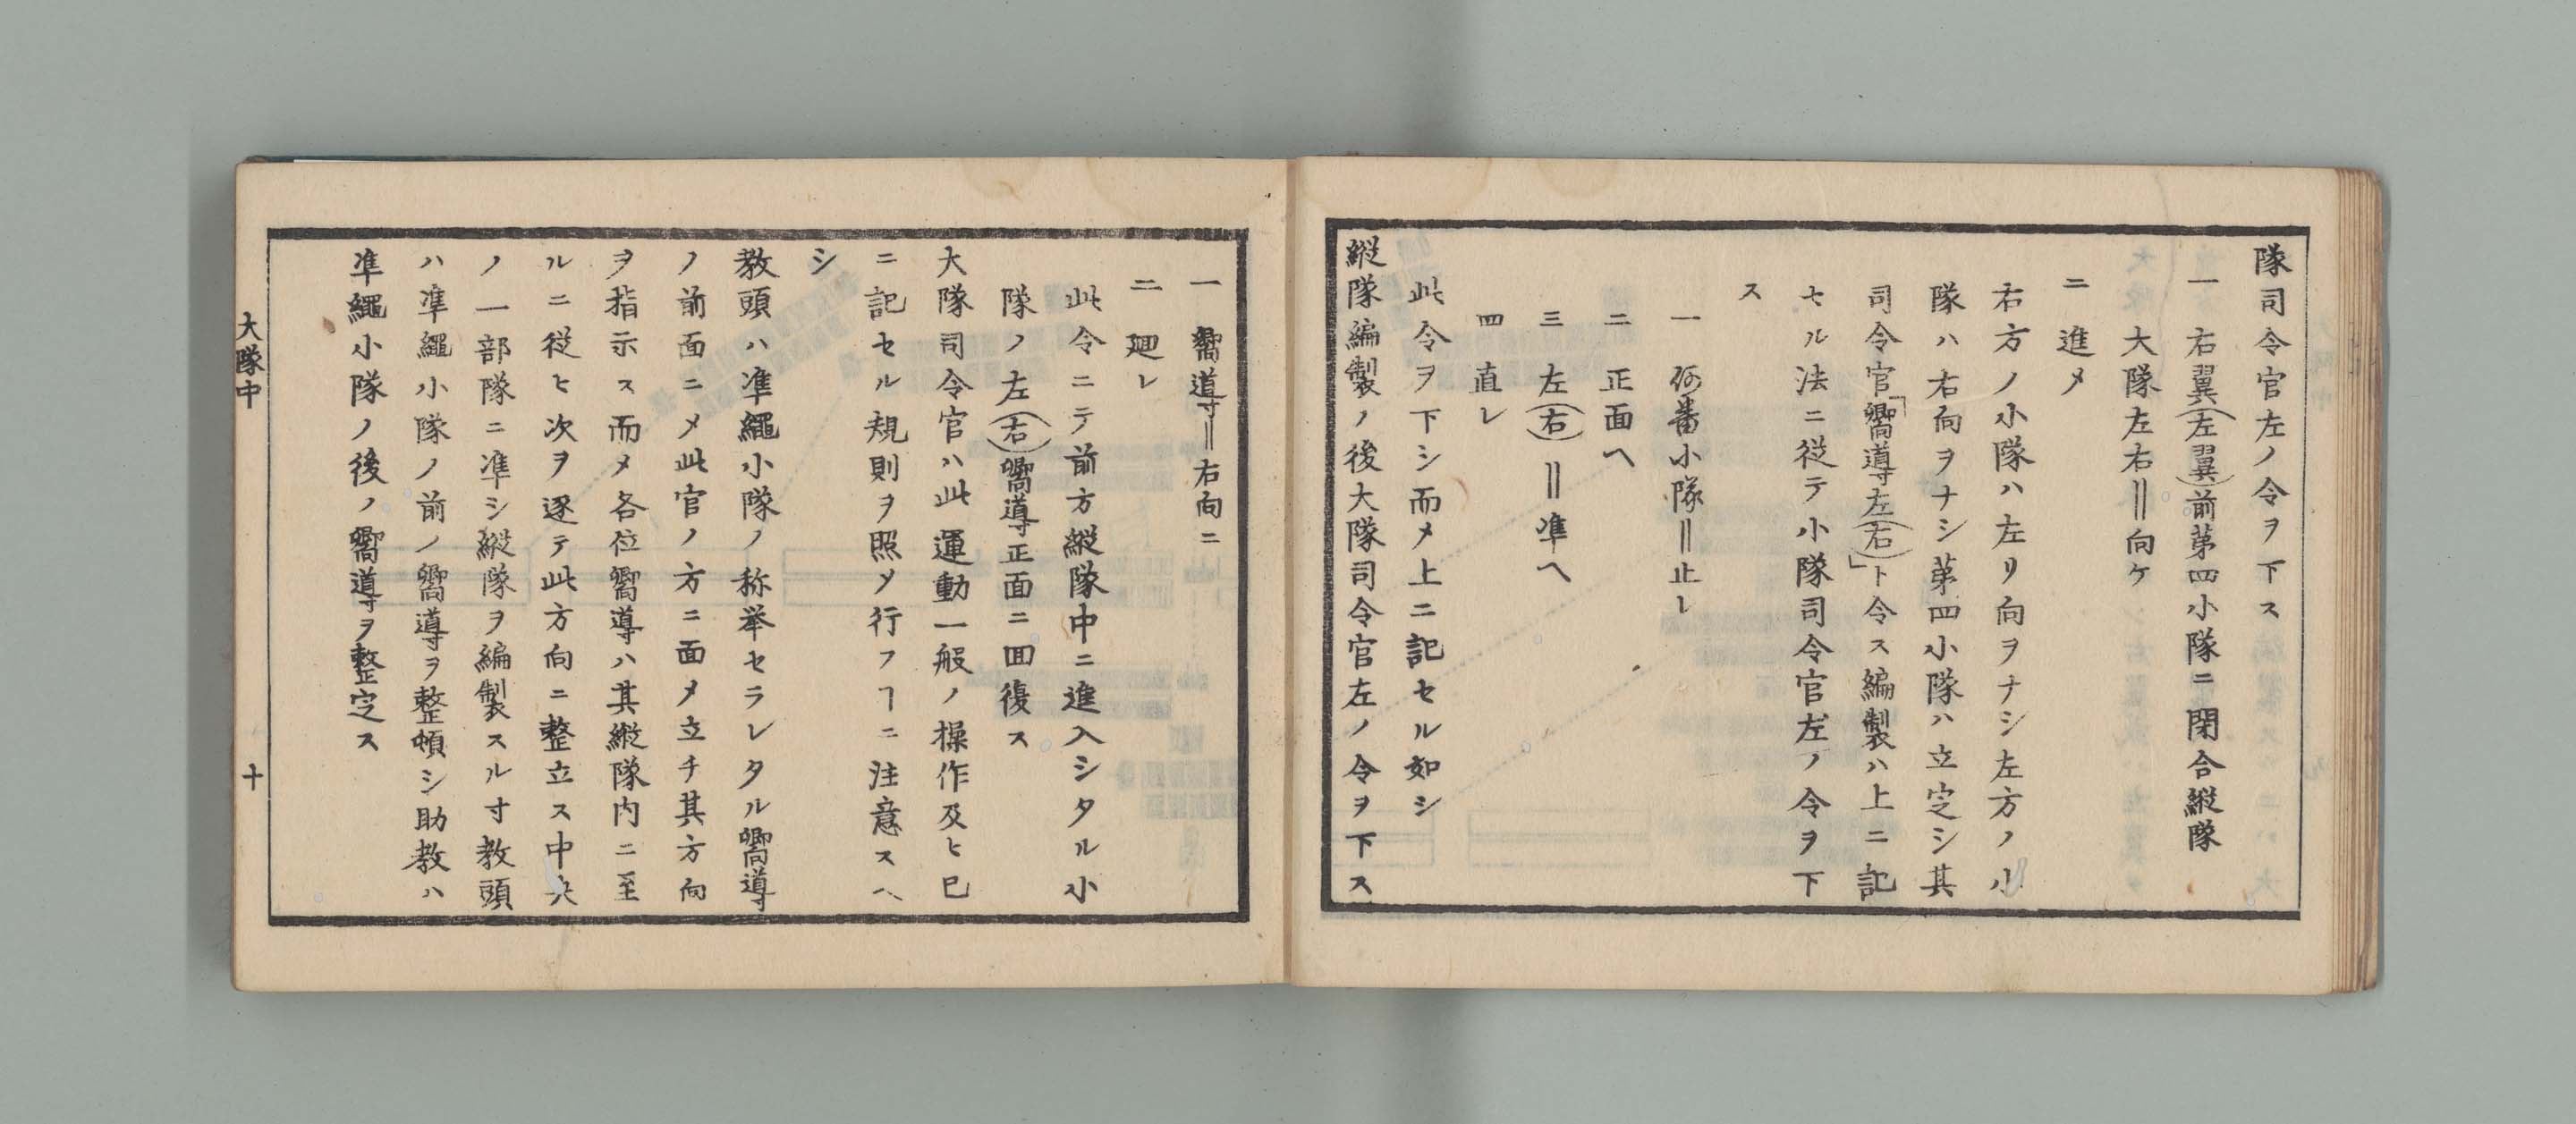 隊司令官左ノ令ヲ下ス
一　右翼(左翼)前第四小隊ニ閉合縦隊
大隊左右‖向ケ
二　進メ
右方ノ小隊ハ左リ向ヲナシ左方ノ小
隊ハ右向ヲナシ第四小隊ハ立定シ其
司令官「嚮導左(右)」ト令ス編製ハ上ニ記
セル法ニ従テ小隊司令官左ノ令ヲ下
ス
一　何番小隊‖止レ
二　正面ヘ
三　左(右)‖準ヘ
四　直レ
此令ヲ下シ而メ上ニ記セル如シ
縦隊編製ノ後大隊司令官左ノ令ヲ下ス
一　嚮導‖右向ニ
二　廻レ
此令ニテ前方縦隊中ニ進入シタル小
隊ノ左(右)嚮導正面ニ囬復ス
大隊司令官ハ此運動一般ノ操作及ヒ已
ニ記セル規則ヲ照メ行フヿニ注意スヘ
シ
教頭ハ準繩小隊ノ称挙セラレタル嚮導
ノ前面ニメ此官ノ方ニ面メ立チ其方向
ヲ指示ス而メ各位嚮導ハ其縦隊内ニ至
ルニ従ヒ次ヲ逐テ此方向ニ整立ス中央
ノ一部隊ニ準シ縦隊ヲ編製スル寸教頭
ハ準繩小隊ノ前ノ嚮導ヲ整頓シ助教ハ
準繩小隊ノ後ノ嚮導ヲ整定ス
大隊中
十